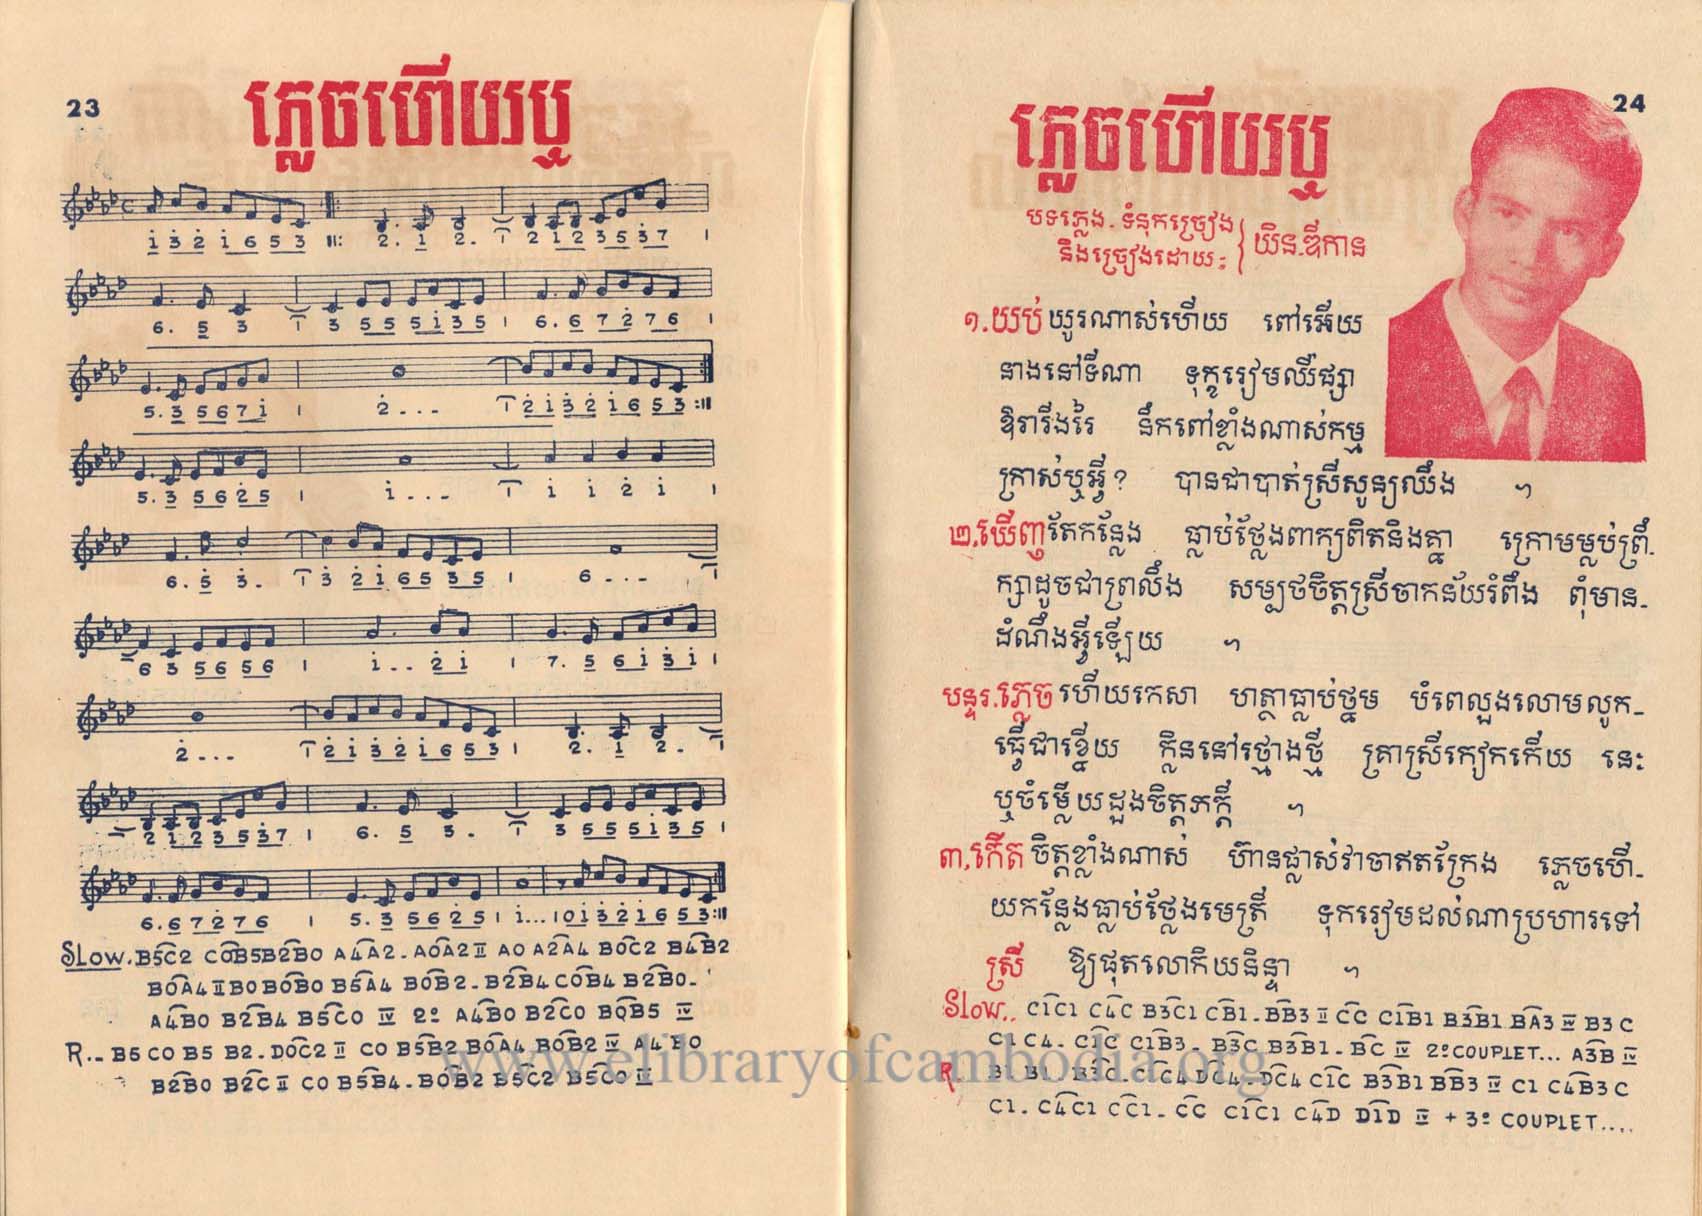 23
ភ្លេចហើយឬ
i 3 2 i 6 5 3 ‖: 2. i 2. 2 i 2 3 5 3 7 |
6. 5 3 3 5 5 5 i 3 5 | 6. 6 7 2 7 6 |
5. 3 5 6 7 i | 2 . . . 2 i 3 2 i 6 5 3 :‖
5. 3 5 6 2 5 | i . . . i i 2 i |
6. 5 3. 3 2 i 6 5 3 5 | 6 . . .
6 3 5 6 5 6 | i . . 2 i | 7. 5 6 i 3 i |
2 . . . 2 i 3 2 i 6 5 3 | 2. i 2.
2 i 2 3 5 3 7 | 6. 5 3. 3 5 5 5 i 3 5 |
6. 6 7 2 7 6 | 5. 3 5 6 2 5 | i... | 0 i 3 2 i 6 5 3 :‖
Slow. B5C2 C0B5B2B0 A4A2. A0A2 II A0 A2A4 B0C2 B4B2
B0A4 II B0 B0B0 B5A4 B0B2. B2B4 C0B4 B2B0.
A4B0 B2B4 B5C0 IV 2º A4B0 B2C0 B0B5 IV
R.- B5 C0 B5 B2. D0C2 II C0 B5B2 B0A4 B0B2 IV A4 B0
B2B0 B2C II C0 B5B4. B0B2 B5C2 B5C0 II
24
ភ្លេចហើយឬ
បទភ្លេង. ទំនុកច្រៀង
និងច្រៀងដោយ: } យិន.ឌីកាន
១.យប់ យូរណាស់ហើយ ពៅអើយ
នាងនៅទីណា ទុក្ខរៀមឈឺផ្សា
ឱរារីងរៃ នឹកពៅខ្លាំងណាស់កម្ម
ក្រាស់ឬអ្វី? បានជាបាត់ស្រីសូន្យឈឹង ។
២.ឃើញ តែកន្លែង ធ្លាប់ថ្លែងពាក្យពិតនិងគ្នា ក្រោមម្លប់ព្រឹ-
ក្សាដូចជាព្រលឹង សម្បថចិត្តស្រីចាកន័យរំពឹង ពុំមាន-
ដំណឹងអ្វីឡើយ ។
បន្ទរ.ភ្លេច ហើយកេសា ហត្ថាធ្លាប់ថ្នម បំពេលួងលោមលូក-
ធ្វើជាខ្នើយ ក្លិននៅថ្មោងថ្មី គ្រាស្រីកៀកកើយ នេះ
ឬចំម្លើយដួងចិត្តភក្ដី ។
៣.កើត ចិត្តខ្លាំងណាស់ ហ៊ានផ្លាស់វាចាឥតក្រែង ភ្លេចហើ-
យកន្លែងធ្លាប់ថ្លែងមេត្រី ទុករៀមដល់ណាប្រហារទៅ
ស្រី ឱ្យផុតលោកិយនិន្ទា ។
Slow.. C1C1 C4C B3C1 CB1. BB3 II CC C1B1 B3B1 BA3 IV B3 C
C1 C4. C1C C1B3. B3C B3B1. BC IV 2º COUPLET... A3B IV
R B1 B1 B3C. C1C4 DC4. DC4 C1C B3B1 BB3 IV C1 C4B3 C
C1. C4C1 CC1. CC C1C1 C4D D1D IV + 3º COUPLET....
www.elibraryofcambodia.org